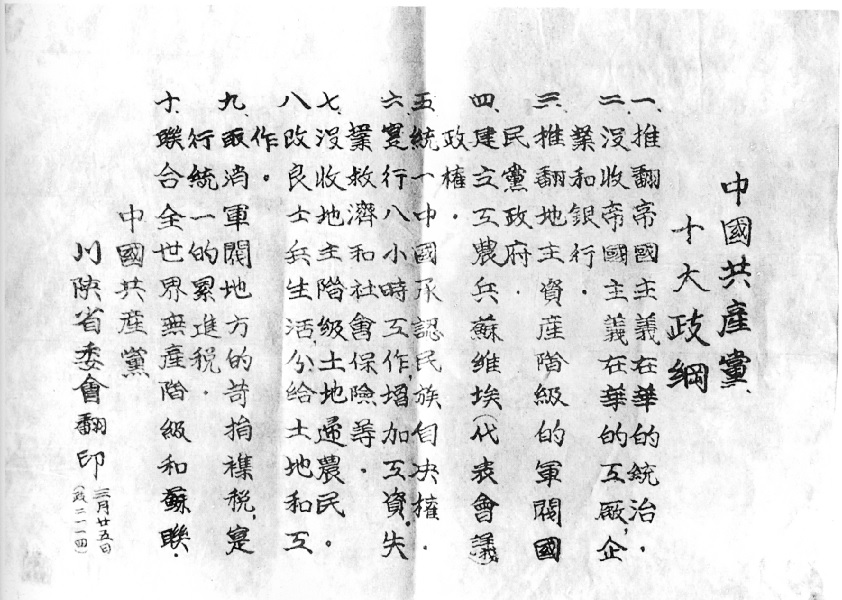 中國共產黨
十大政綱
一、推翻帝國主義在華的統治．
二、沒收帝國主義在華的工廠，企
業和銀行．
三、推翻地主資產階級的軍閥國
民黨政府．
四、建立工農兵蘇維埃（代表會議）
政權．
五、統一中國承認民族自决權．
六、寔行八小時工作，增加工資，失
業救濟和社會保險等．
七、沒收地主階級土地歸農民。
八、改良士兵生活，分給土地和工
作。
九、取消軍閥地方的苛捐襍稅，寔
行統一的累進稅．
十、聯合全世界無產階級和蘇聯．
中國共產黨
川陝省委會翻印
三月廿五日
（政二一一四）